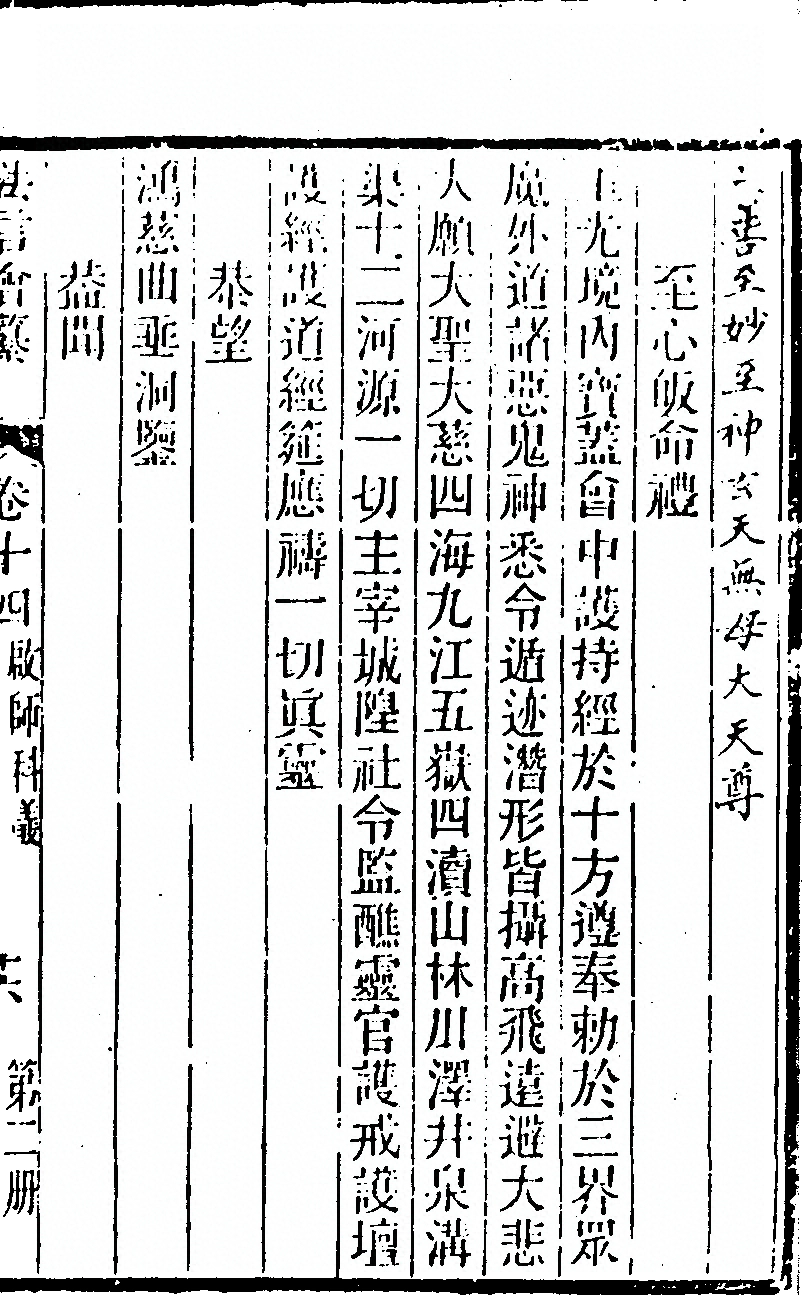 善至妙至神玄天無母大天尊
至心皈命禮
王光境內寶蓋會中護持經於十方遵奉勅於三界眾
魔外道諸惡鬼神悉令遁迹潛形皆攝高飛遠避大悲
大願大聖大慈四海九江五嶽四瀆山林川澤井泉溝
渠十二河源一切主宰城隍社令監醮靈官護戒護壇
護經護道經筵應禱一切眞靈
恭望
鴻慈曲垂洞鑒
恭聞
法言會纂 卷十四啟師科義 第二册